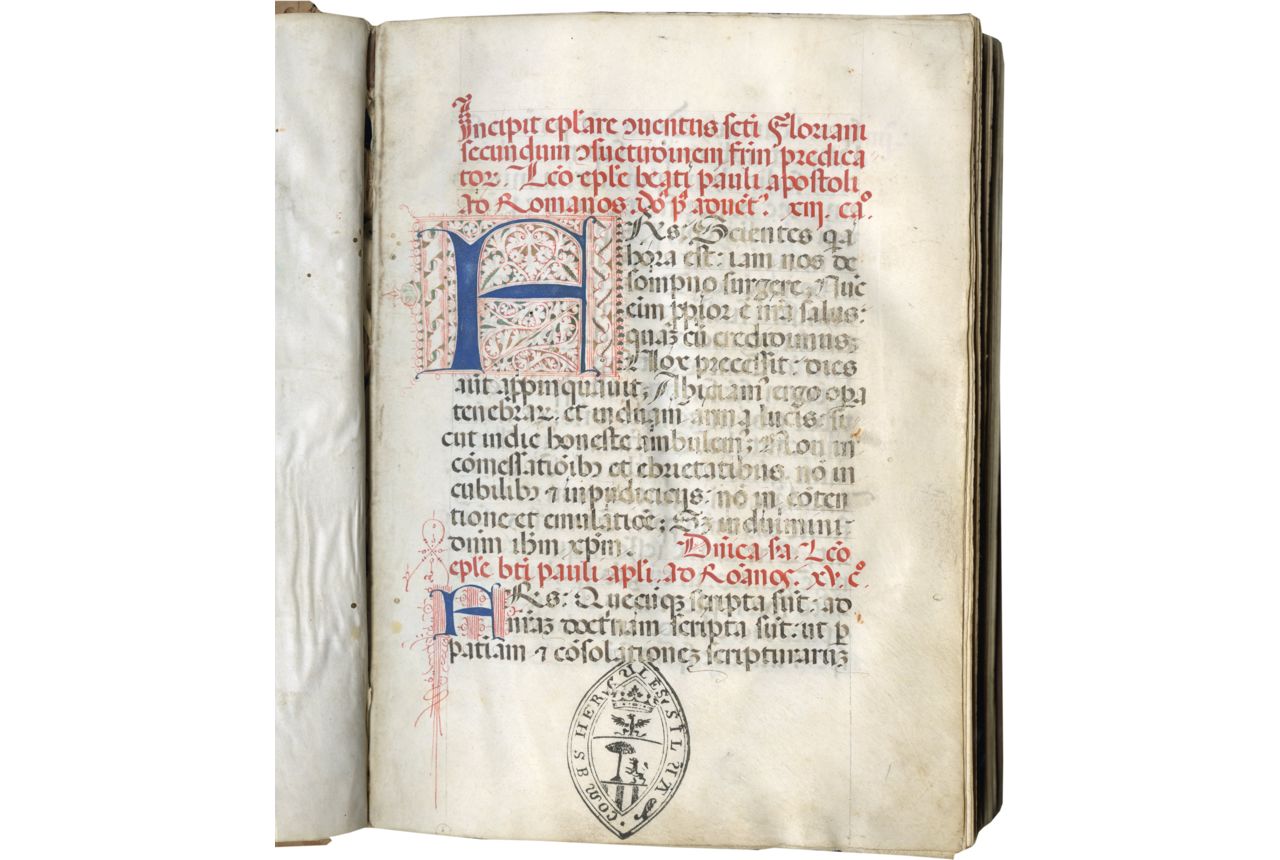 Incipit epl̄are ↄuentus sc̄ti Floriani
secundum ↄsuetudinem frm̄ predica
tor. Lc̄o epl̄e beati pauli apostoli
ad Romanos. Do. p. aduēt. xiij. ca°.
FRēs. Scientes qa
hora est: iam nos de
sompno surgere. Nūc
eim ꝓpior ē nr̄a salus:
quaʒ cū credidimus;
Nox precessit: dies
aūt appinquauit; Abiciam' ergo opa
tenebrar. et induam' arma lucis. si
cut in die honeste ambulem'; Non in
cōmessatiōibꝰ et ebrietatibus. nō in
cubilibꝰ ⁊ inpudiciciis: nō in cōten
tione et emulatiōe; Sʒ induimini
dūm ih̄m xp̄m. Dn̄ica sᵃ. Lc̄o
epl̄e bt̄i pauli apl̄i. ad Roānos. xv. c°.
FRēs: Quecūqʒ scripta sūt: ad
nr̄aʒ doct'nam scripta sūt: ut ꝑ
patiam ⁊ cōsolationeʒ scripturaruʒ
COM BS HERCULES SILVA